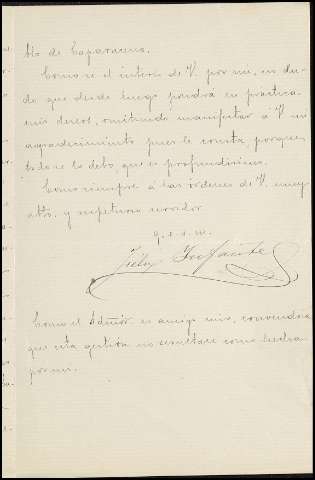 blo de Caparacena.
Como se el interes de V. por mi, no du-
do que desde luego pondrá en práctica
mis deseos, omitiendo manifestar á V. mi
agradecimiento pues le consta, porque
todo se lo debo, que es profundisimo.
Como siempre á las órdenes de V. muy
atto. y respetuoso servidor
q. e. s. m.
Felix Infante
Como el Editor es amigo mio, convendria
que esta gestion no resultase como hecha
por mi.